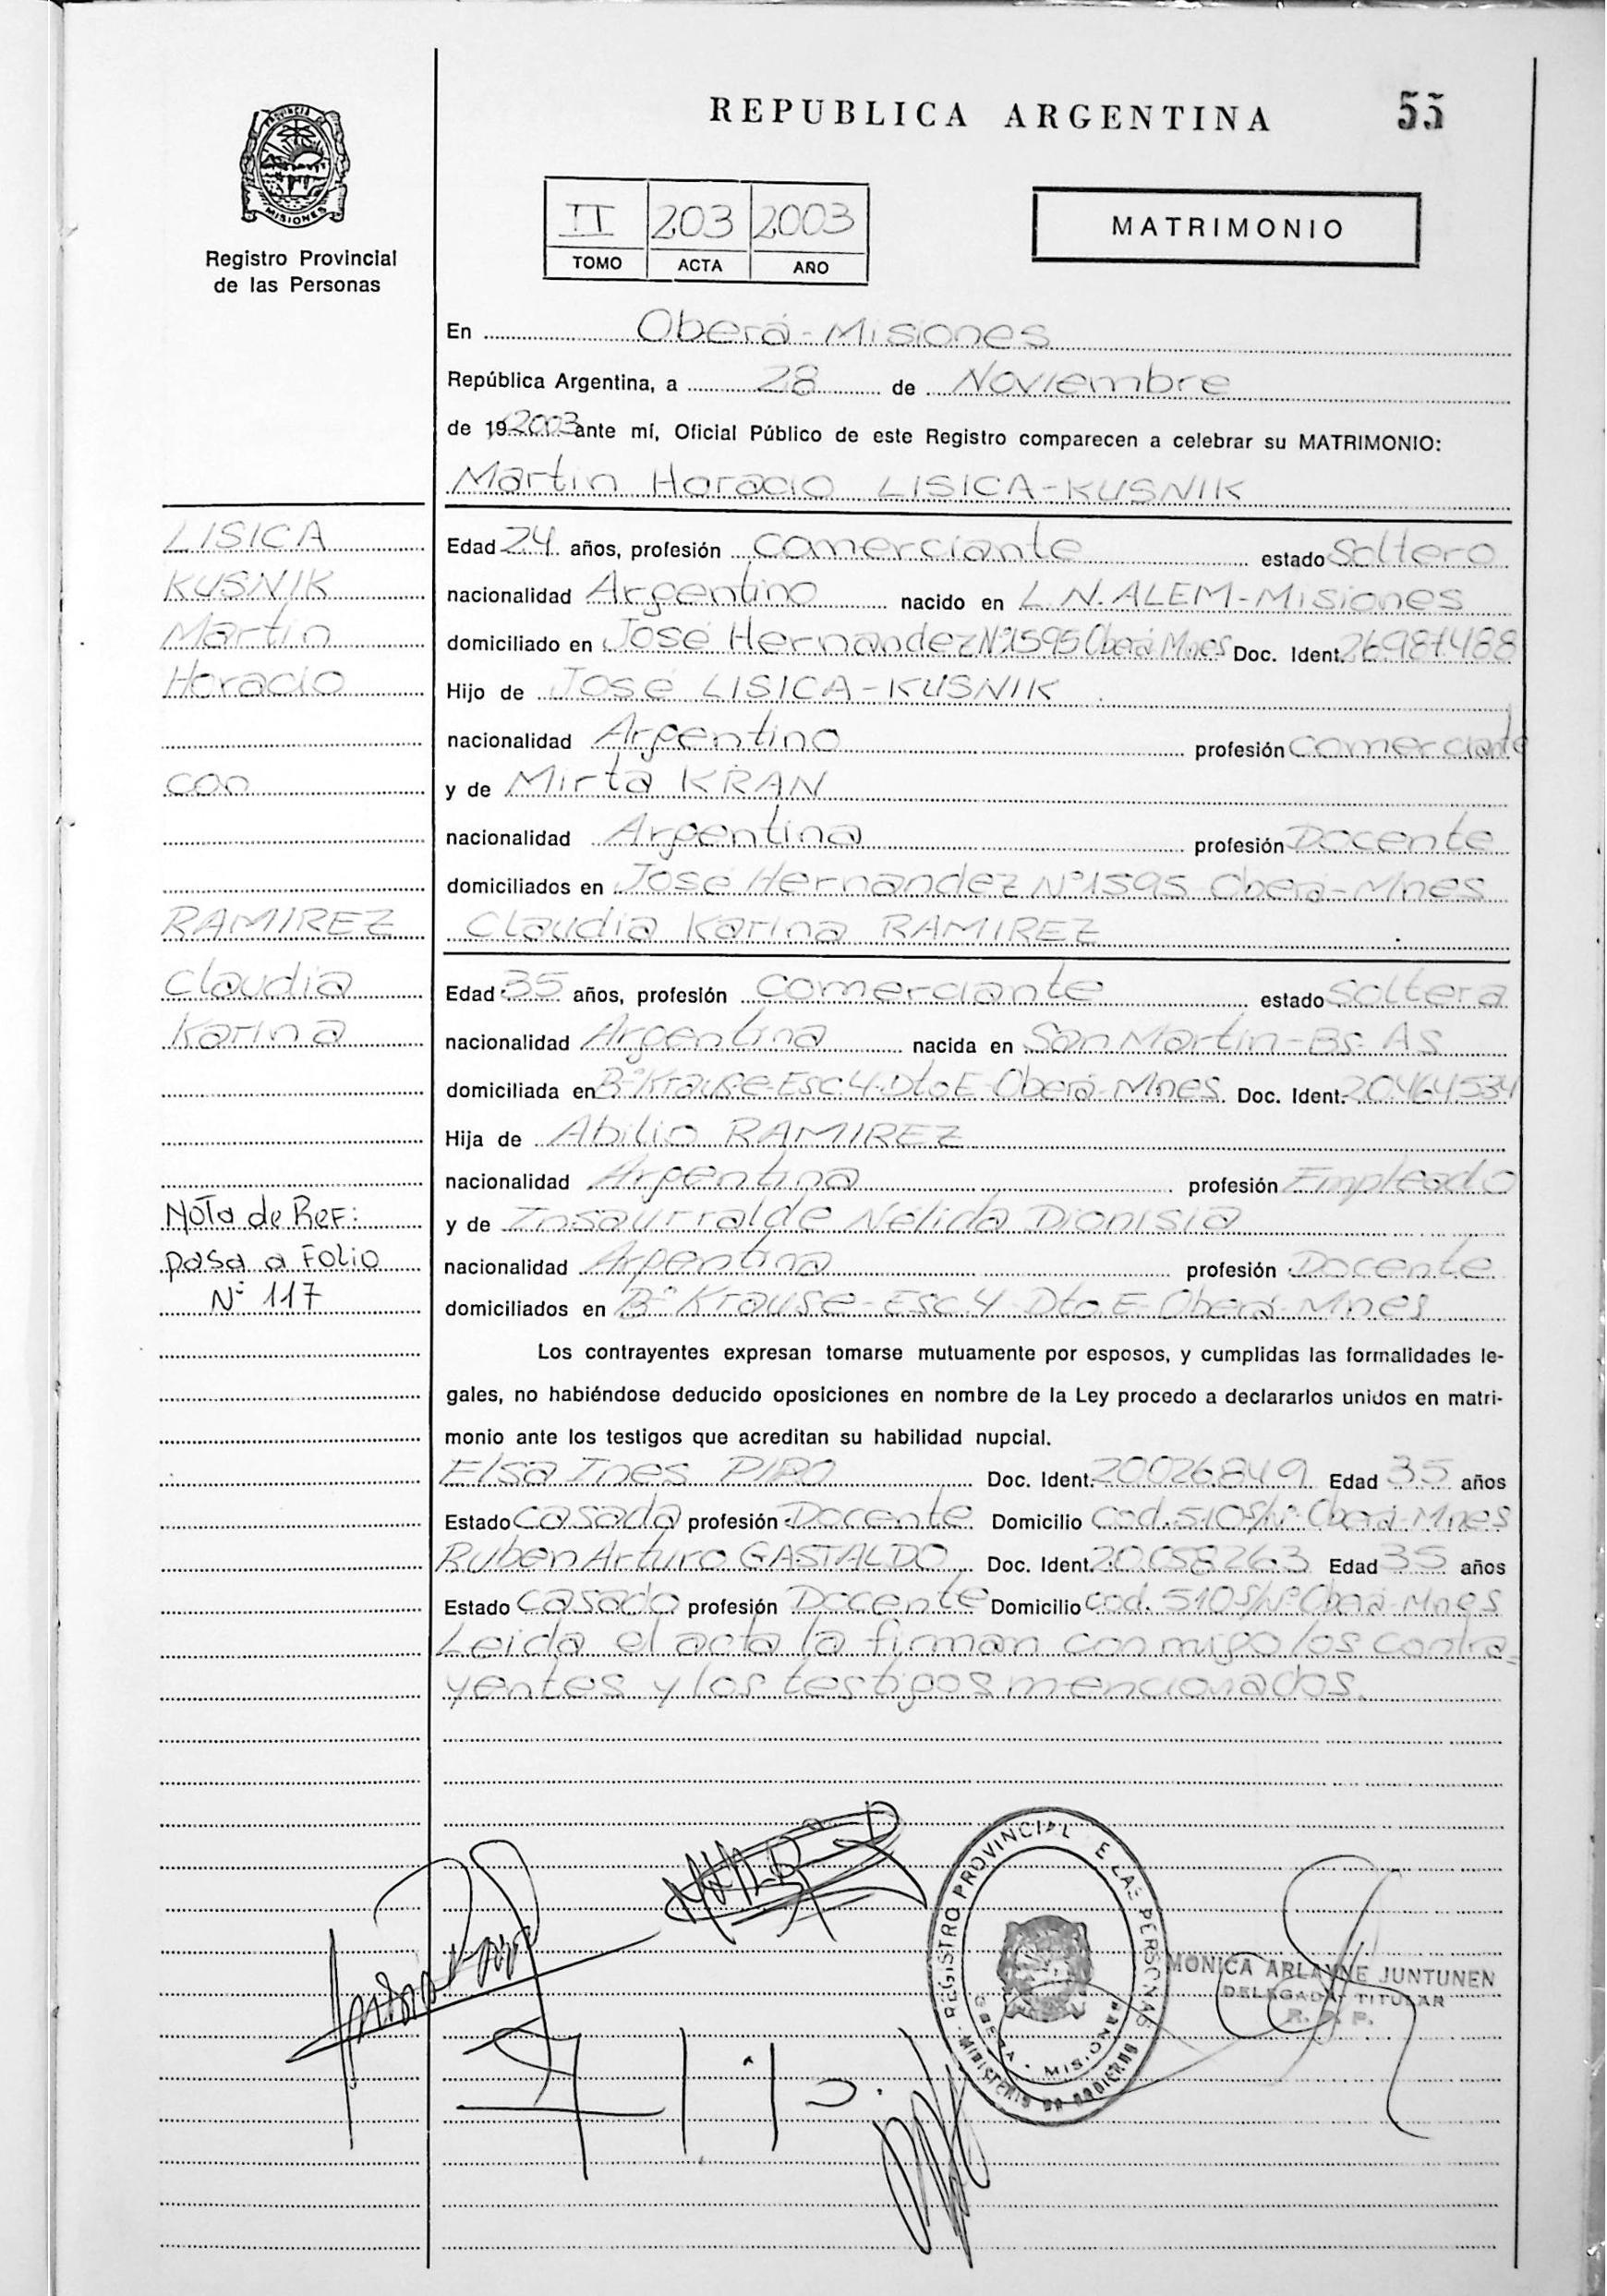 REPUBLICA ARGENTINA
55
PROVINCIA DE
MISIONES
Registro Provincial
de las Personas
II 203 2003
TOMO ACTA AÑO
MATRIMONIO
En Oberá-Misiones
República Argentina, a 28 de Noviembre
de 19 2003 ante mí, Oficial Público de este Registro comparecen a celebrar su MATRIMONIO:
Martin Horacio LISICA-KUSNIK
LISICA
KUSNIK
Martin
Horacio
con
RAMIREZ
Claudia
Karina
Nota de Ref:
pasa a Folio
Nº 117
Edad 24 años, profesión Comerciante estado Soltero
nacionalidad Argentino nacido en L.N. ALEM-Misiones
domiciliado en José Hernandez Nº1595 Oberá Mnes Doc. Ident. 26.987.488
Hijo de José LISICA-KUSNIK
nacionalidad Argentino profesión Comerciante
y de Mirta KRAN
nacionalidad Argentina profesión Docente
domiciliados en José Hernandez Nº1595 Oberá-Mnes
Claudia Karina RAMIREZ
Edad 35 años, profesión Comerciante estado Soltera
nacionalidad Argentina nacida en San Martin-Bs. As
domiciliada en Bº Krause-Esc 4-Dto E-Oberá-Mnes Doc. Ident. 20.464.534
Hija de Abilio RAMIREZ
nacionalidad Argentina profesión Empleado
y de Insaurralde Nélida Dionisia
nacionalidad Argentina profesión Docente
domiciliados en Bº Krause-Esc. 4-Dto. E-Oberá-Mnes
Los contrayentes expresan tomarse mutuamente por esposos, y cumplidas las formalidades le-
gales, no habiéndose deducido oposiciones en nombre de la Ley procedo a declararlos unidos en matri-
monio ante los testigos que acreditan su habilidad nupcial.
Elsa Ines PIRO Doc. Ident. 20.026.849 Edad 35 años
Estado Casada profesión Docente Domicilio Cod. 510 S/Nº Oberá-Mnes
Ruben Arturo GASTALDO Doc. Ident. 20.058.263 Edad 35 años
Estado Casado profesión Docente Domicilio Cod. 510 S/Nº Oberá-Mnes
Leida el acta la firman conmigo los contra=
yentes y los testigos mencionados.
REGISTRO PROVINCIAL E LAS PERSONAS
MINISTERIO DE GOBIERNO
OBERA - MISIONES
MONICA ARLAYNE JUNTUNEN
DELEGADA TITULAR
R. P. P.